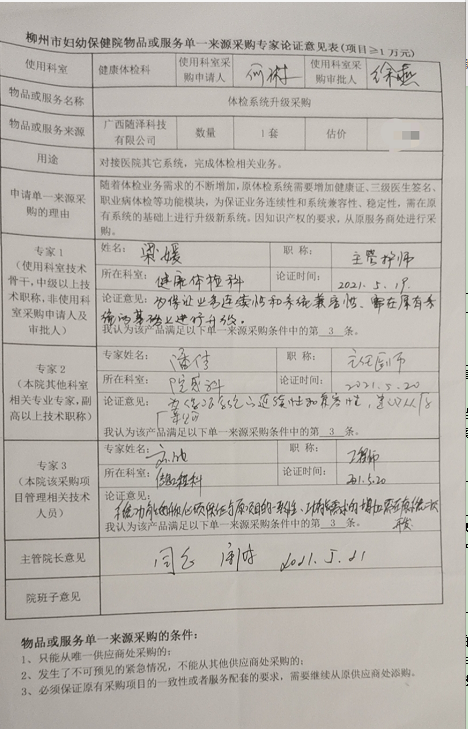 柳州市妇幼保健院物品或服务单一来源采购专家论证意见表(项目≥1万元)
使用科室 健康体检科 使用科室采购申请人 使用科室采购审批人 徐燕
物品或服务名称 体检系统升级采购
物品或服务来源 广西随泽科技有限公司 数量 1套 估价
用途 对接医院其它系统，完成体检相关业务。
申请单一来源采购的理由
随着体检业务需求的不断增加,原体检系统需要增加健康证、三级医生签名、
职业病体检等功能模块，为保证业务连续性和系统兼容性、稳定性，需在原
有系统的基础上进行升级新系统。因知识产权的要求，从原服务商处进行采
购。
专家1
(使用科室技术骨干,中级以上技术职称,非使用科室采购申请人及审批人)
姓名： 梁媛 职称： 主管护师
所在科室： 健康体检科 论证时间： 2021.5.19.
论证意见： 为保证业务连续性和系统兼容性、需在原有系
统的基础上进行升级。
我认为该产品满足以下单一来源采购条件中的第 3 条。
专家2
(本院其他科室相关专业专家,副高以上技术职称)
专家姓名： 职称： 主任医师
所在科室： 院感科 论证时间： 2021.5.20
论证意见：
我认为该产品满足以下单一来源采购条件中的第 3 条。
专家3
(本院该采购项目管理相关技术人员)
专家姓名： 职称： 工程师
所在科室： 信息科 论证时间： 2021.5.20
论证意见：
我认为该产品满足以下单一来源采购条件中的第 3 条。
主管院长意见 同意 2021.5.21
院班子意见
物品或服务单一来源采购的条件：
1、只能从唯一供应商处采购的；
2、发生了不可预见的紧急情况，不能从其他供应商处采购的；
3、必须保证原有采购项目的一致性或者服务配套的要求，需要继续从原供应商处添购。